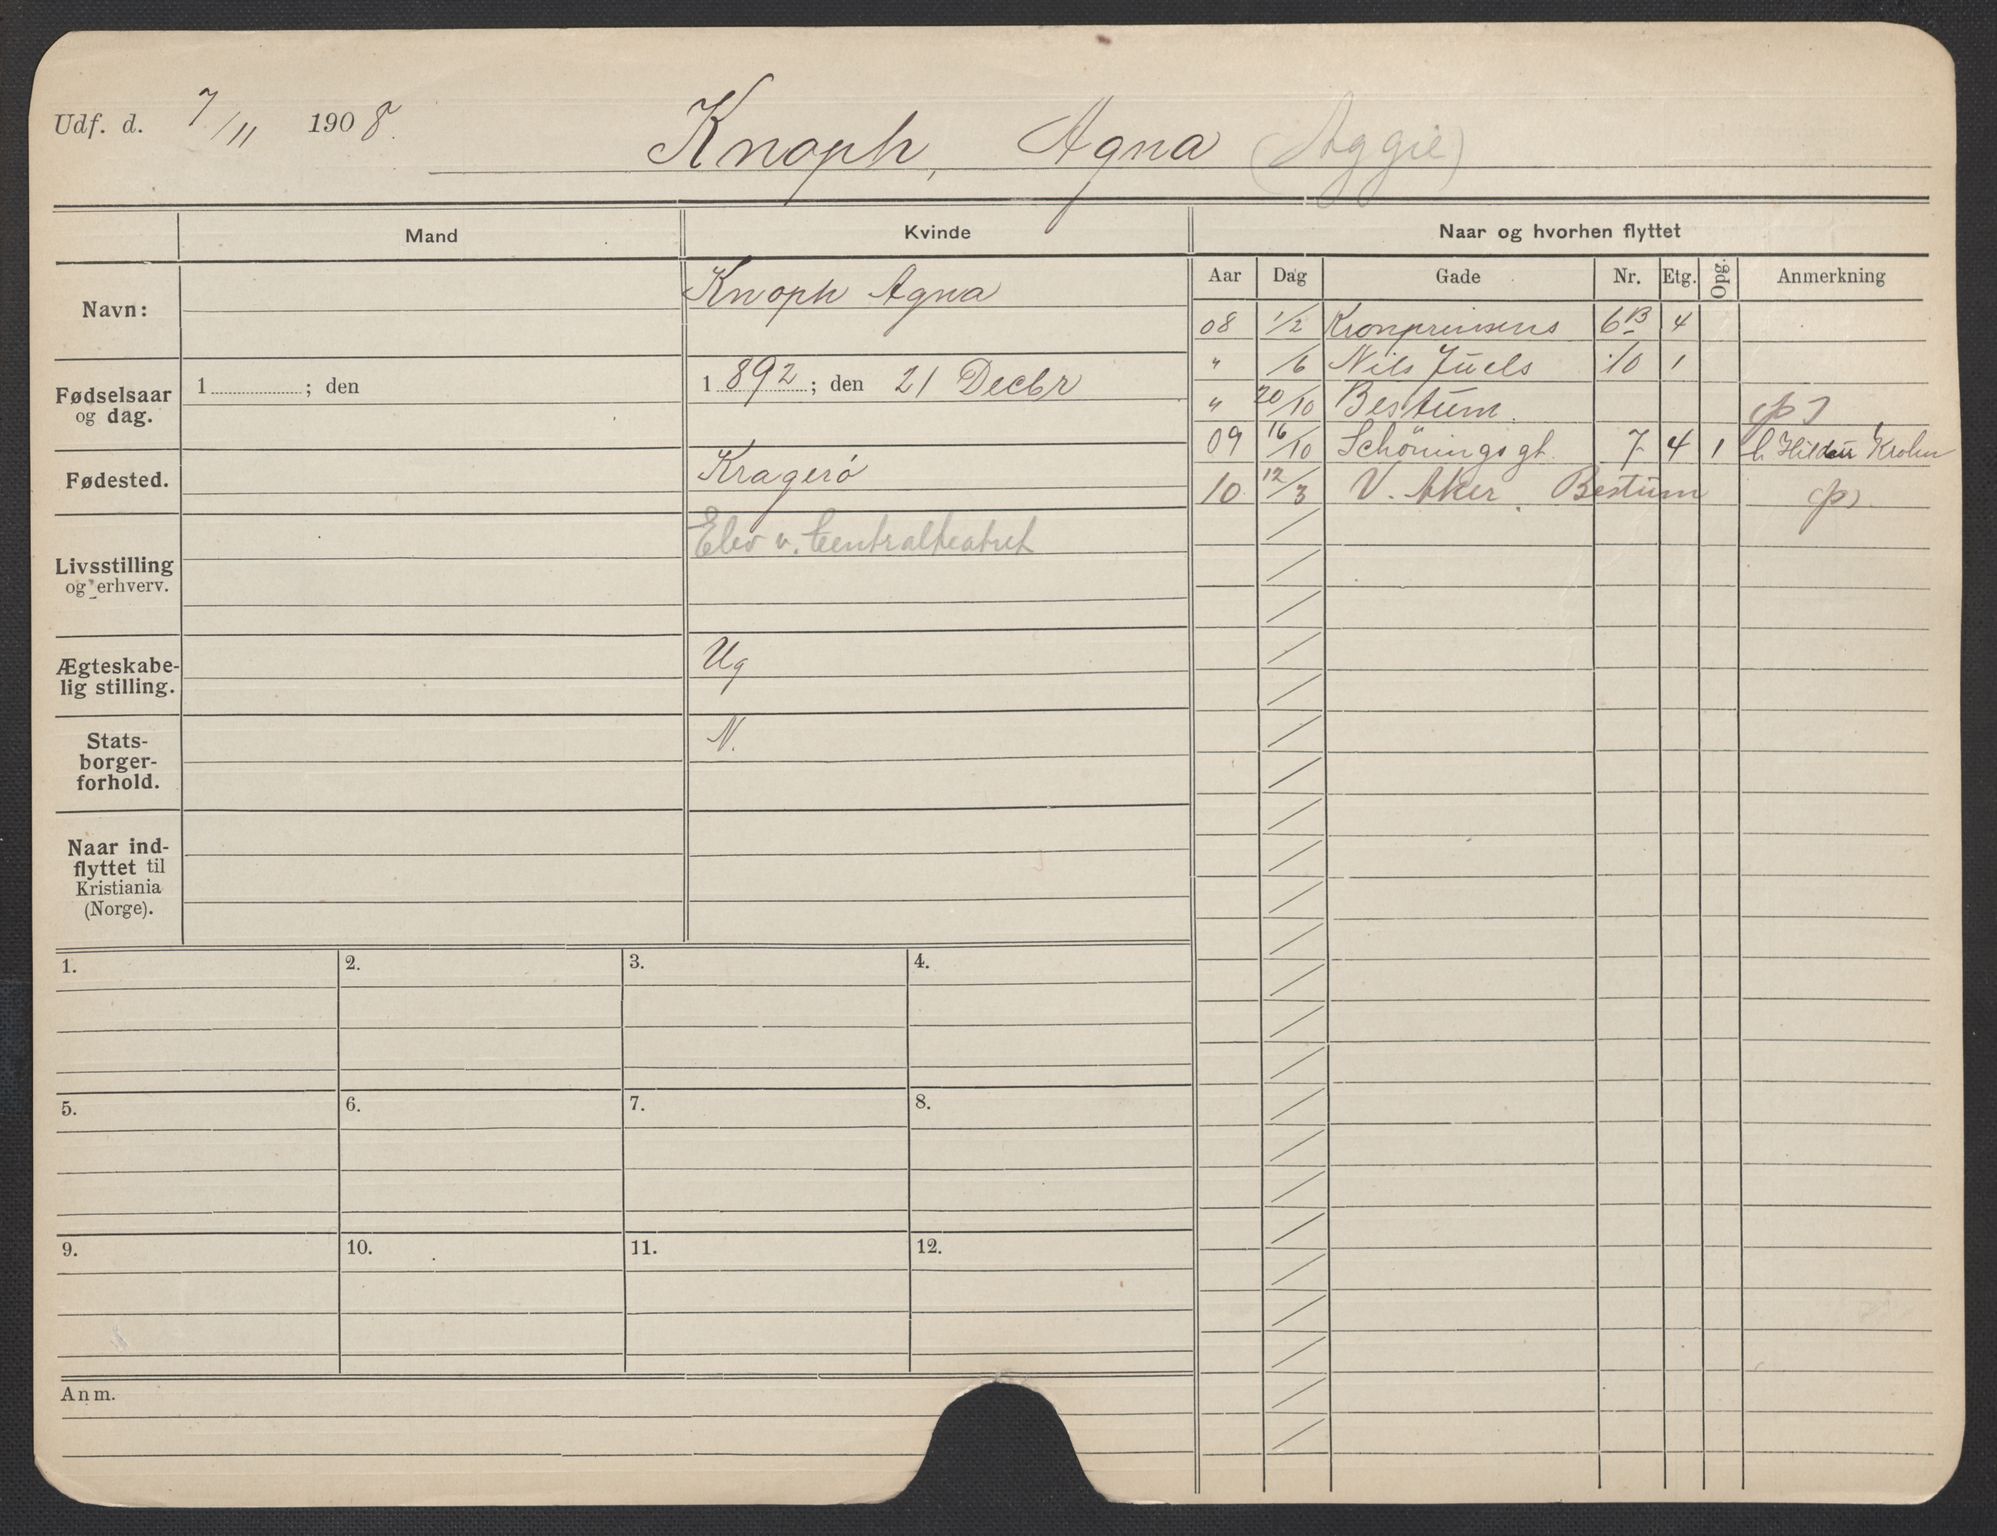 Udf. d. 7/11 1908.
Knoph, Agna (Aggie)
Mand
Kvinde
Naar og hvorhen flyttet
Aar Dag Gade Nr. Etg. Opg. Anmerkning
Navn:
Knoph Agna
Fødselsaar og dag.
1 ; den
1 892 ; den 21 Decbr
Fødested.
Kragerø
Livsstilling og erhverv.
Elev v. Centralteatret
Ægteskabe-
lig stilling.
Ug
Stats-
borger-
forhold.
N.
Naar ind-
flyttet til
Kristiania
(Norge).
08 1/2 Kronprinsens 6B 4
" 1/6 Nils Juels 10 1
" 20/10 Bestum. (p)
09 16/10 Schöningsgt. 7 4 1 Krohn
10 12/3 V. Aker. Bestum (p).
1. 2. 3. 4.
5. 6. 7. 8.
9. 10. 11. 12.
Anm.